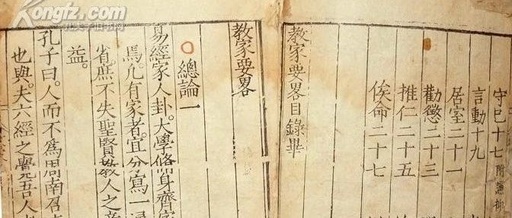 Kongfz.com
守己十七
言動十九
居室二十一
勸懲二十三
推仁二十五
俟命二十七
教家要畧目錄畢
教家要畧
總論一
易經家人卦。大學脩身齊
爲凡有家者宜分寫一
省庶不失聖賢敎人之
益。
孔子曰。人而不爲周南召
也與。夫六經之 吾人